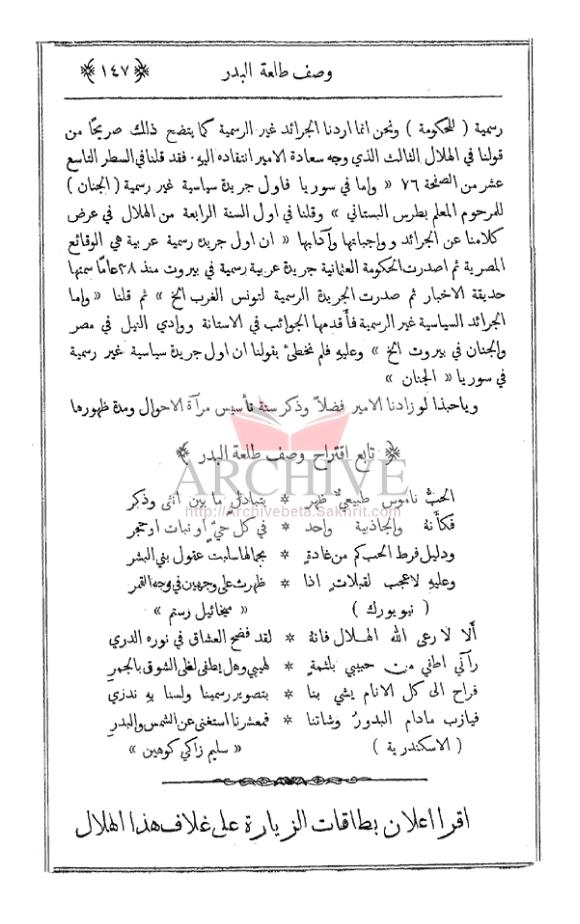 وصف طلعة البدر ﴿ ١٤٧ ﴾
رسمية ( للحكومة ) ونحن انما اردنا الجرائد غير الرسمية كما يتضح ذلك صريحًا من
قولنا في الهلال الثالث الذي وجه سعادة الامير انتقاده اليه. فقد قلنا في السطر التاسع
عشر من الصفحة ٧٦ « واما في سوريا فاول جريدة سياسية غير رسمية ( الجنان )
للمرحوم المعلم بطرس البستاني » وقلنا في اول السنة الرابعة من الهلال في عرض
كلامنا عن الجرائد وواجباتها وآدابها « ان اول جريدة رسمية عربية هي الوقائع
المصرية ثم اصدرت الحكومة العثمانية جريدة عربية رسمية في بيروت منذ ٣٨ عامًا سمتها
حديقة الاخبار ثم صدرت الجريدة الرسمية لتونس الغرب الخ » ثم قلنا « واما
الجرائد السياسية غير الرسمية فأقدمها الجوائب في الاستانة ووادي النيل في مصر
والجنان في بيروت الخ » وعليه فلم نخطئ بقولنا ان اول جريدة سياسية غير رسمية
في سوريا « الجنان »
وياحبذا لو زادنا الامير فضلاً وذكر سنة تأسيس مرآة الاحوال ومدة ظهورها
﴿ تابع اقتراح وصف طلعة البدر ﴾
ARCHIVE
http://Archivebeta.Sakhrit.com
الحبُّ ناموس طبيعيٌّ ظهر * بتبادلٍ ما بين انثى وذكر
فكأنهُ والجاذبية واحد * في كل حيٍّ او نبات او حجر
ودليل فرط الحب كم من غادةٍ * بجمالها سلبت عقول بني البشر
وعليهِ لا عجب لقبلات اذا * ظهرت على وجهين في وجه القمر
( نيويورك ) « ميخائيل رستم »
ألا لا رعى الله الهلال فانهُ * لقد فضح العشاق في نوره الدري
رآني اطفي من حبيبي بلثمةٍ * لهيبي وهل يطفى لظى الشوق بالجمرِ
فراح الى كل الانام يشي بنا * بتصوير رسمينا ولسنا به ندري
فيارب مادام البدورُ وشاتنا * فمعشرنا استغنى عن الشمس والبدرِ
( الاسكندرية ) « سليم زاكي كوهين »
اقرا اعلان بطاقات الزيارة على غلاف هذا الهلال